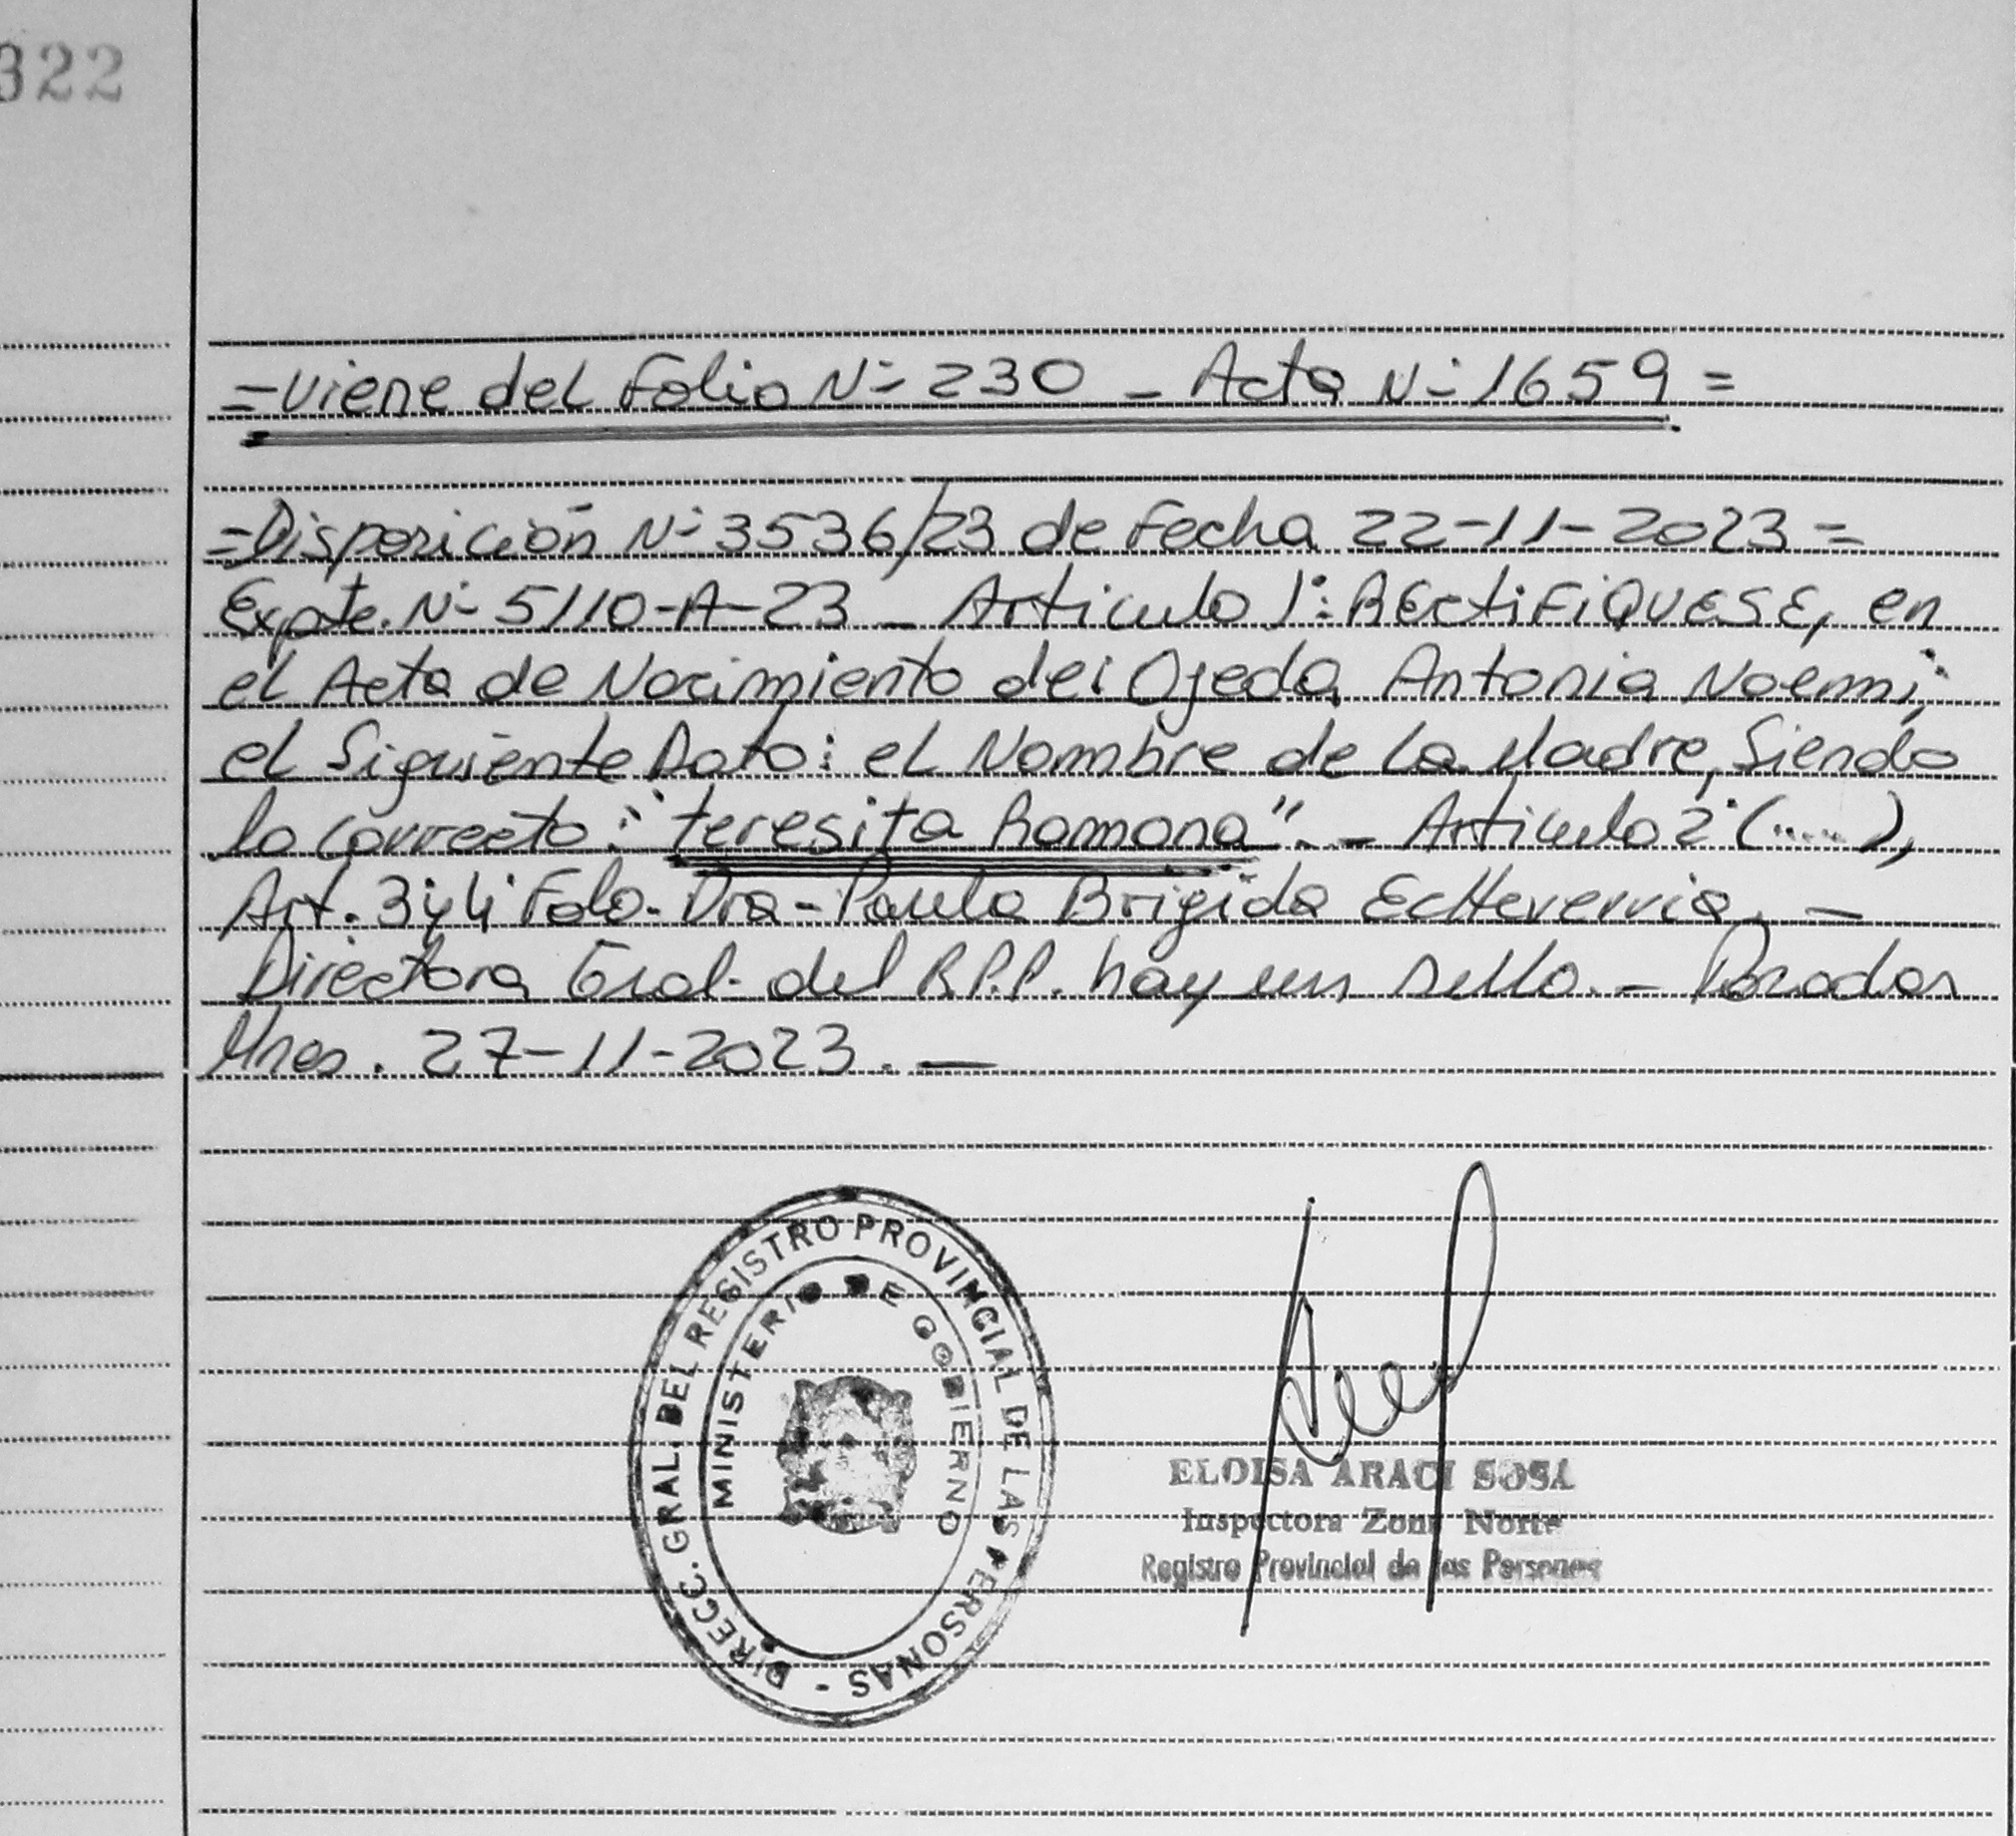 322
=Viene del Folio Nº 230 - Acta Nº 1659=
=Disposición Nº 3536/23 de Fecha 22-11-2023=
Expte. Nº 5110-A-23 - Articulo 1º: RECtiFiQUESE, en
el Acta de Nacimiento de: Ojeda Antonia Noemi;
el Siguiente Dato: el Nombre de la Madre, Siendo
lo Correcto: "teresita Ramona". - Articulo 2º (.....),
Art. 3º y 4º Fdo. Dra - Paula Brigida Echeverria. -
Directora Gral. del R.P.P. hay un sello. - Posadas
Mnes. 27-11-2023. -
DIRECC. GRAL. DEL REGISTRO PROVINCIAL DE LAS PERSONAS -
MINISTERIO DE GOBIERNO
ELOISA ARACI SOSA
Inspectora Zona Norte
Registro Provincial de las Personas